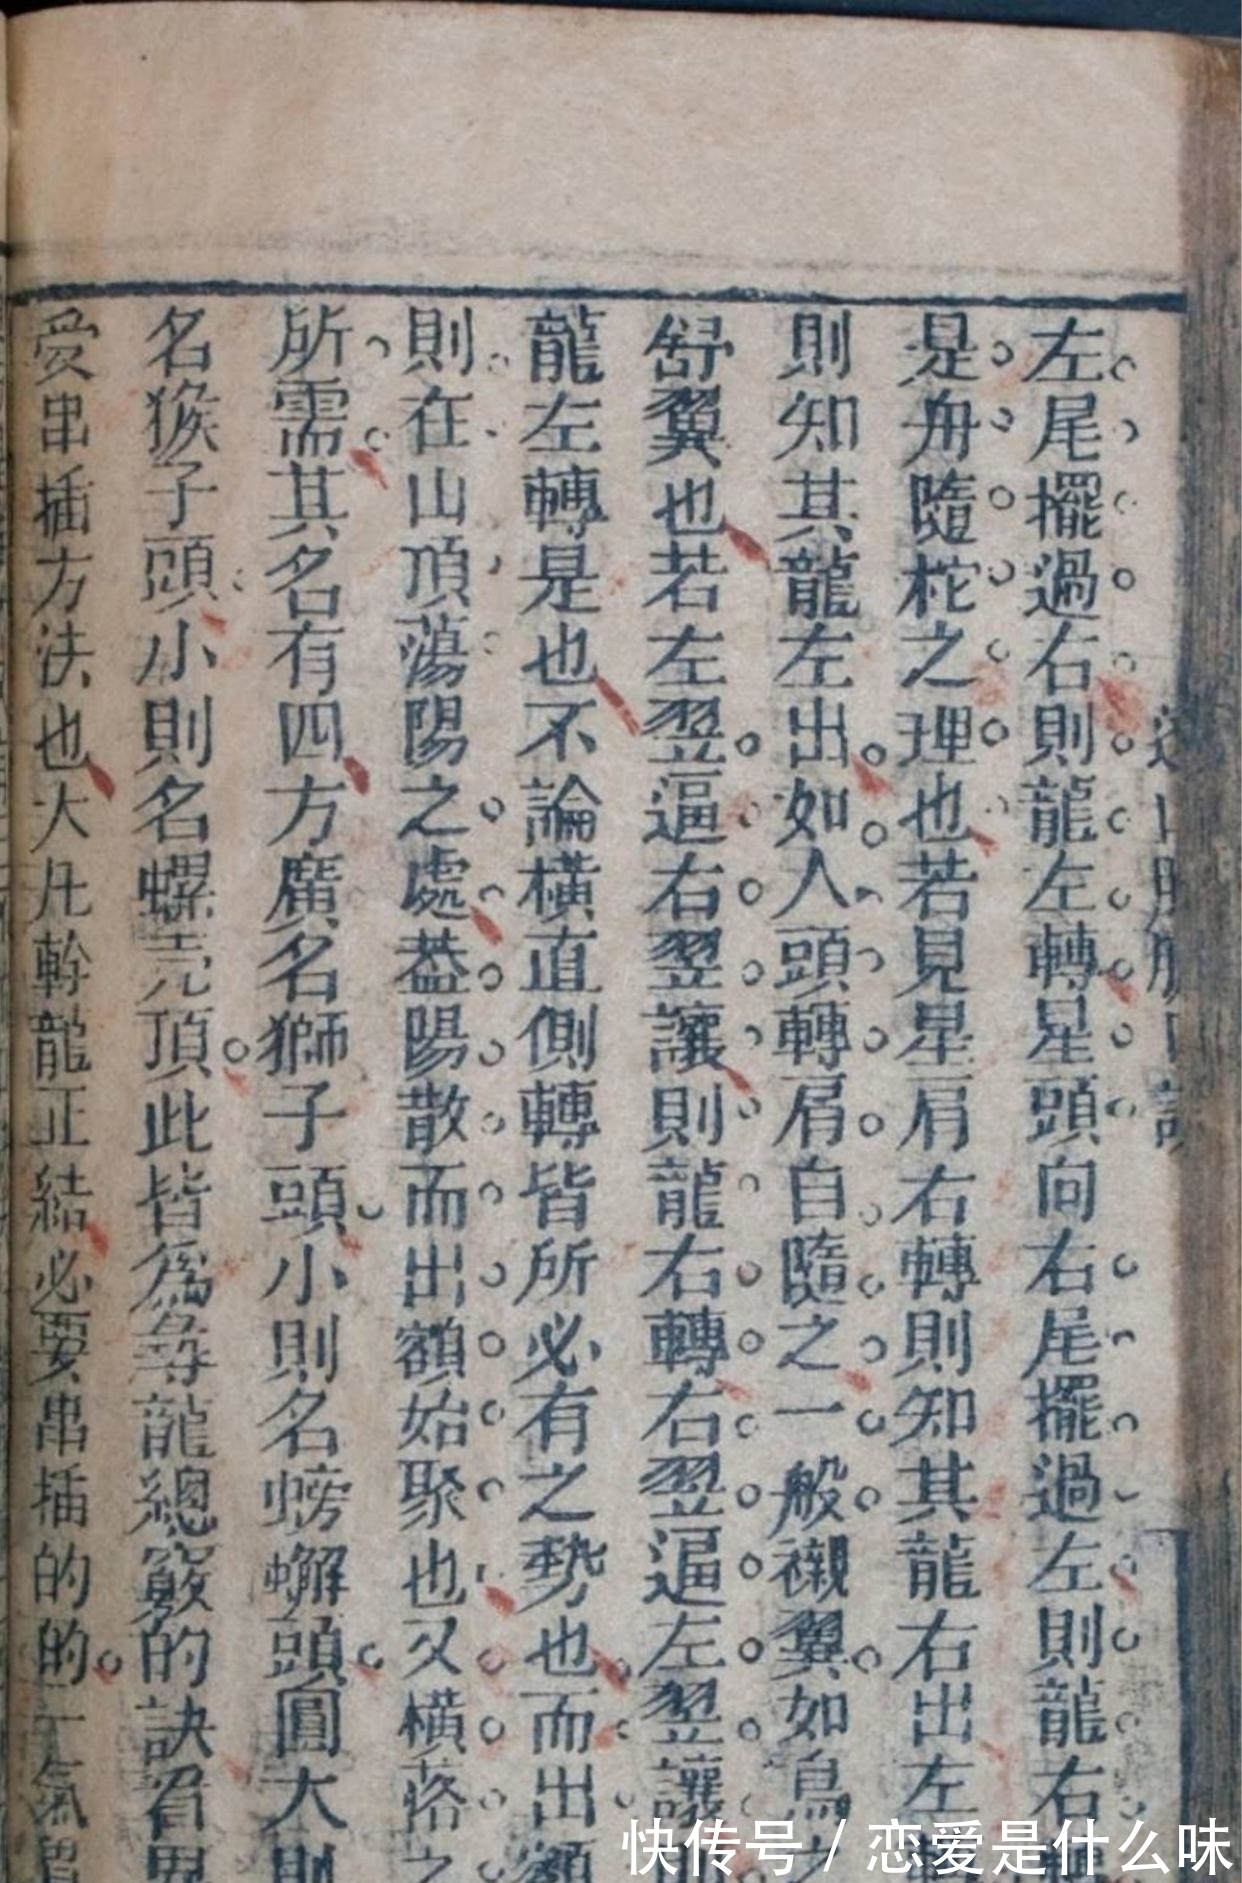 左尾擺過右則龍左轉星頭向右尾擺過左則龍右
是舟隨柁之理也若見星肩右轉則知其龍右出左
則知其龍左出如人頭轉肩自隨之一般襯翼如鳥之
舒翼也若左翌逼右翌讓則龍右轉右翌逼左翌讓
龍左轉是也不論橫直側轉皆所必有之勢也而出額
則在山頂蕩陽之處葢陽散而出額始聚也又橫落之
所需其名有四方廣名獅子頭小則名螃蠏頭圓大則
名猴子頭小則名螺壳頂此皆為尋龍總竅的訣看界
受串插方法也大凡幹龍正結必要串插的的一氣
快传号 / 恋爱是什么味